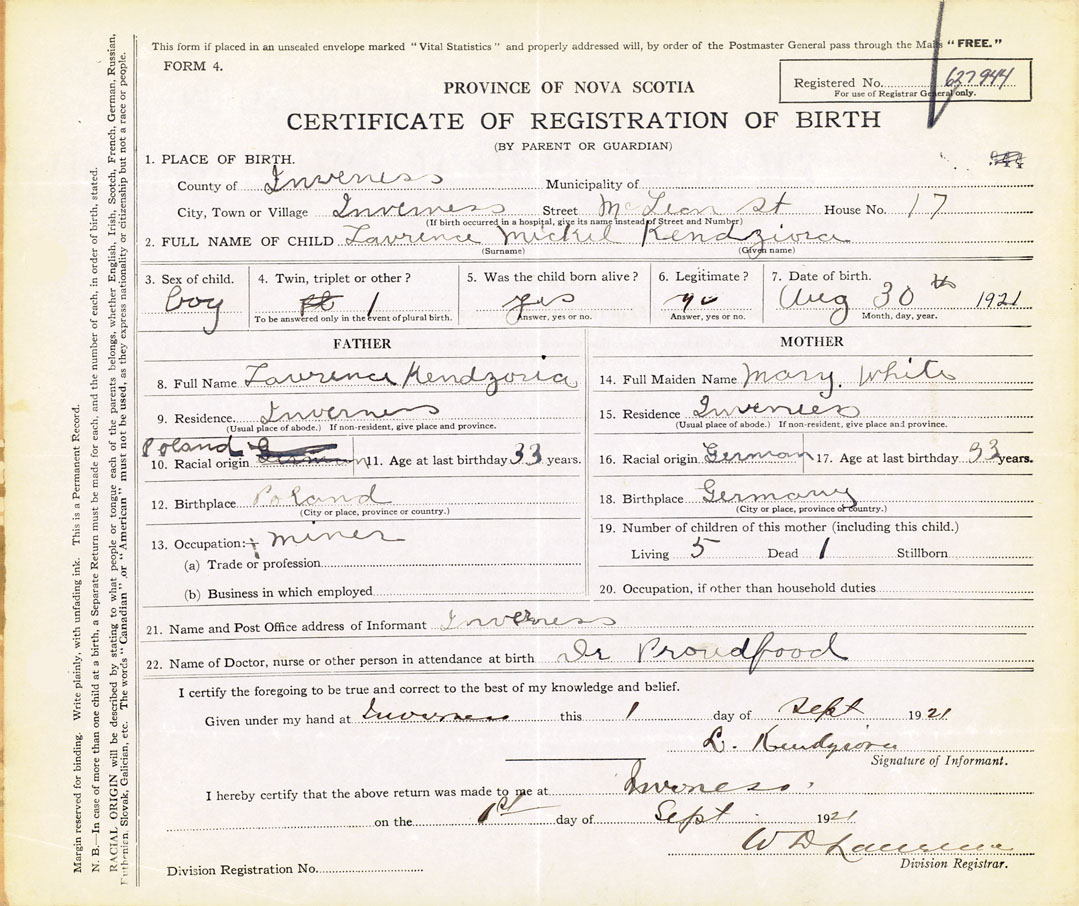 This form if placed in an unsealed envelope marked "Vital Statistics" and properly addressed will, by order of the Postmaster General pass through the Mails "FREE."
FORM 4.
Registered No. 627944
For use of Registrar General only.
PROVINCE OF NOVA SCOTIA
CERTIFICATE OF REGISTRATION OF BIRTH
(BY PARENT OR GUARDIAN)
1. PLACE OF BIRTH.
County of Inverness Municipality of
City, Town or Village Inverness Street McLean St House No. 17
(If birth occurred in a hospital, give its name instead of Street and Number)
2. FULL NAME OF CHILD Lawrence Mickel Kendziora
(Surname) (Given name)
3. Sex of child. 4. Twin, triplet or other? 5. Was the child born alive? 6. Legitimate? 7. Date of birth.
boy 1 yes Aug 30th 1921
To be answered only in the event of plural birth. Answer, yes or no. Answer, yes or no. Month, day, year.
FATHER
8. Full Name Lawrence Kendzoria
9. Residence. Inverness
(Usual place of abode.) If non-resident, give place and province.
Poland
10. Racial origin German 11. Age at last birthday 33 years.
12. Birthplace Poland
(City or place, province or country.)
13. Occupation:+ miner
(a) Trade or profession
(b) Business in which employed
MOTHER
14. Full Maiden Name Mary. White
15. Residence Inverness
(Usual place of abode.) If non-resident, give place and province.
16. Racial origin German 17. Age at last birthday 33 years.
18. Birthplace Germany
(City or place, province or country.)
19. Number of children of this mother (including this child.)
Living 5 Dead 1 Stillborn
20. Occupation, if other than household duties
21. Name and Post Office address of Informant Inverness
22. Name of Doctor, nurse or other person in attendance at birth Dr Proudfood
I certify the foregoing to be true and correct to the best of my knowledge and belief.
Given under my hand at Inverness this 1 day of Sept 1921
L. Kendziora
Signature of Informant.
I hereby certify that the above return was made to me at Inverness
on the 1st day of Sept 1921
W D Lawrence
Division Registrar.
Division Registration No.
Margin reserved for binding. Write plainly, with unfading ink. This is a Permanent Record.
N. B.—In case of more than one child at a birth, a Separate Return must be made for each, and the number of each, in order of birth, stated.
RACIAL ORIGIN will be described by stating to what people or tongue each of the parents belongs, whether English, Irish, Scotch, French, German, Russian,
Ruthenian, Slovak, Galician, etc. The words "Canadian" or "American" must not be used, as they express nationality or citizenship but not a race or people.